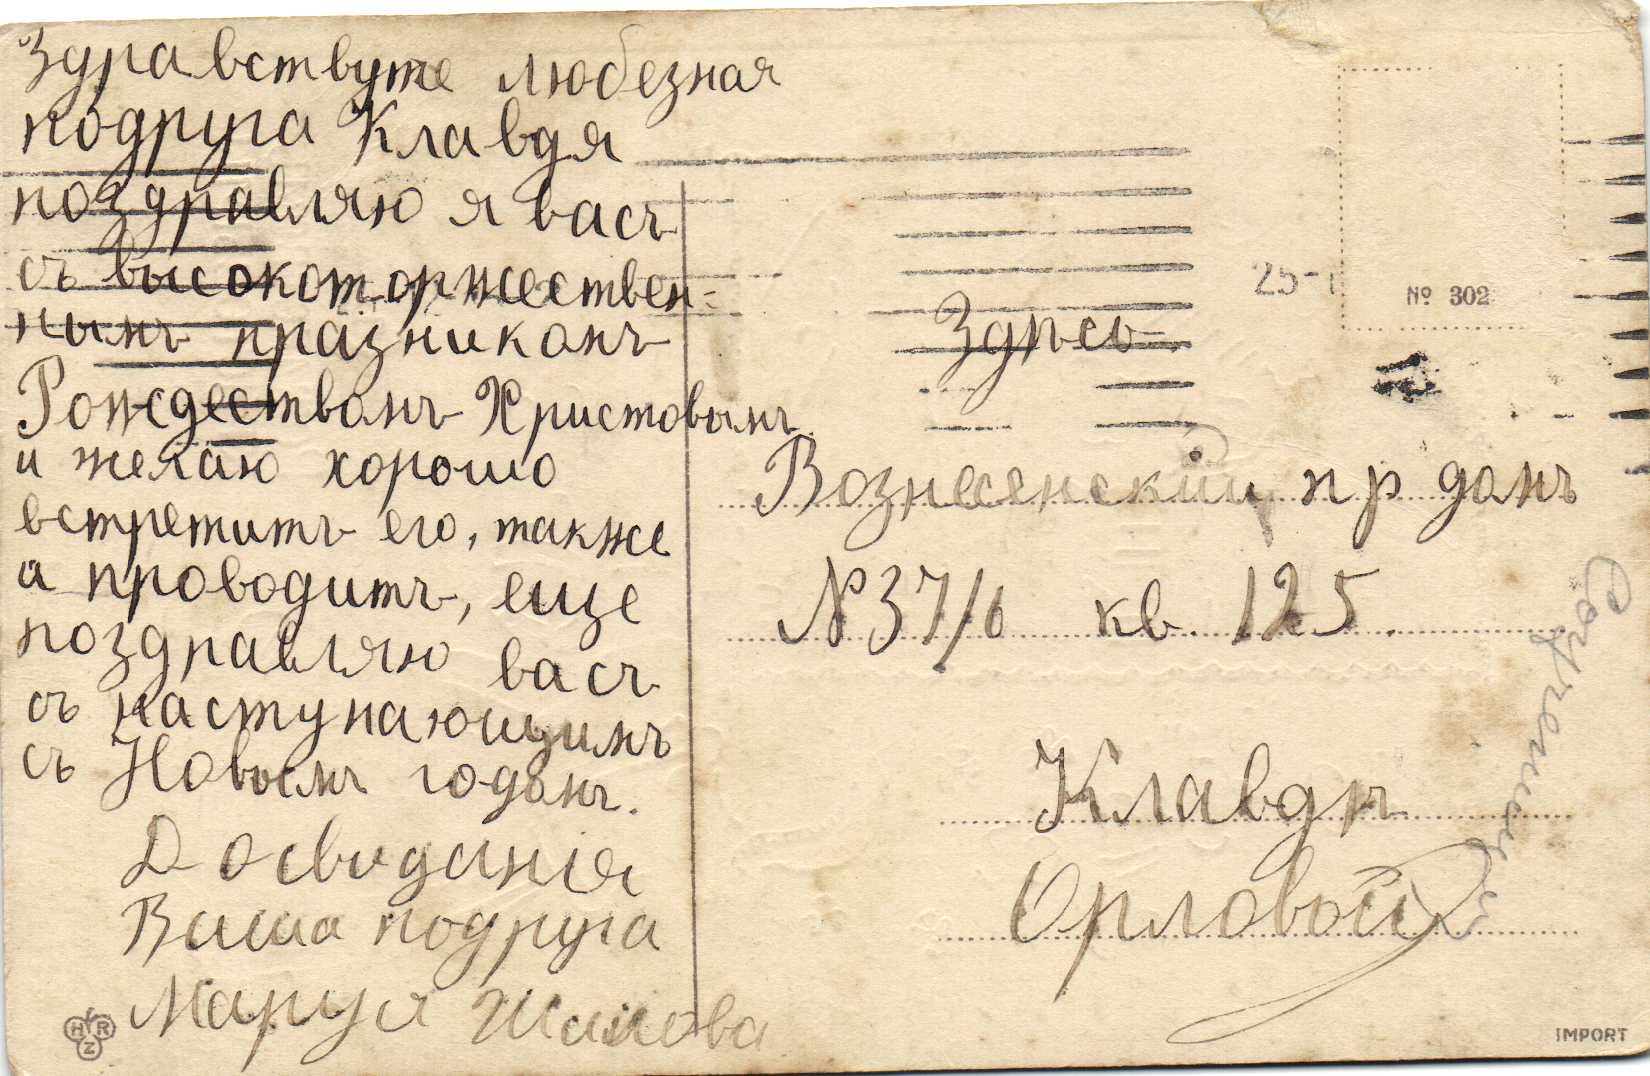 Здравствуте любезная
подруга Клавдя
поздравляю я васъ
съ высокоторжествен-
нымъ празникомъ
Рождествомъ Христовымъ
и желаю хорошо
встретитъ его, также
и проводитъ, еще
поздравляю васъ
съ наступающимъ
съ Новымъ годомъ.
До свиданiя
Ваша подруга
Маруся
Здѣсь
Вознесенский пр домъ
№ 37/6 кв. 125.
Клавдѣ
Орловой
25-1
№ 302
HRZ
IMPORT